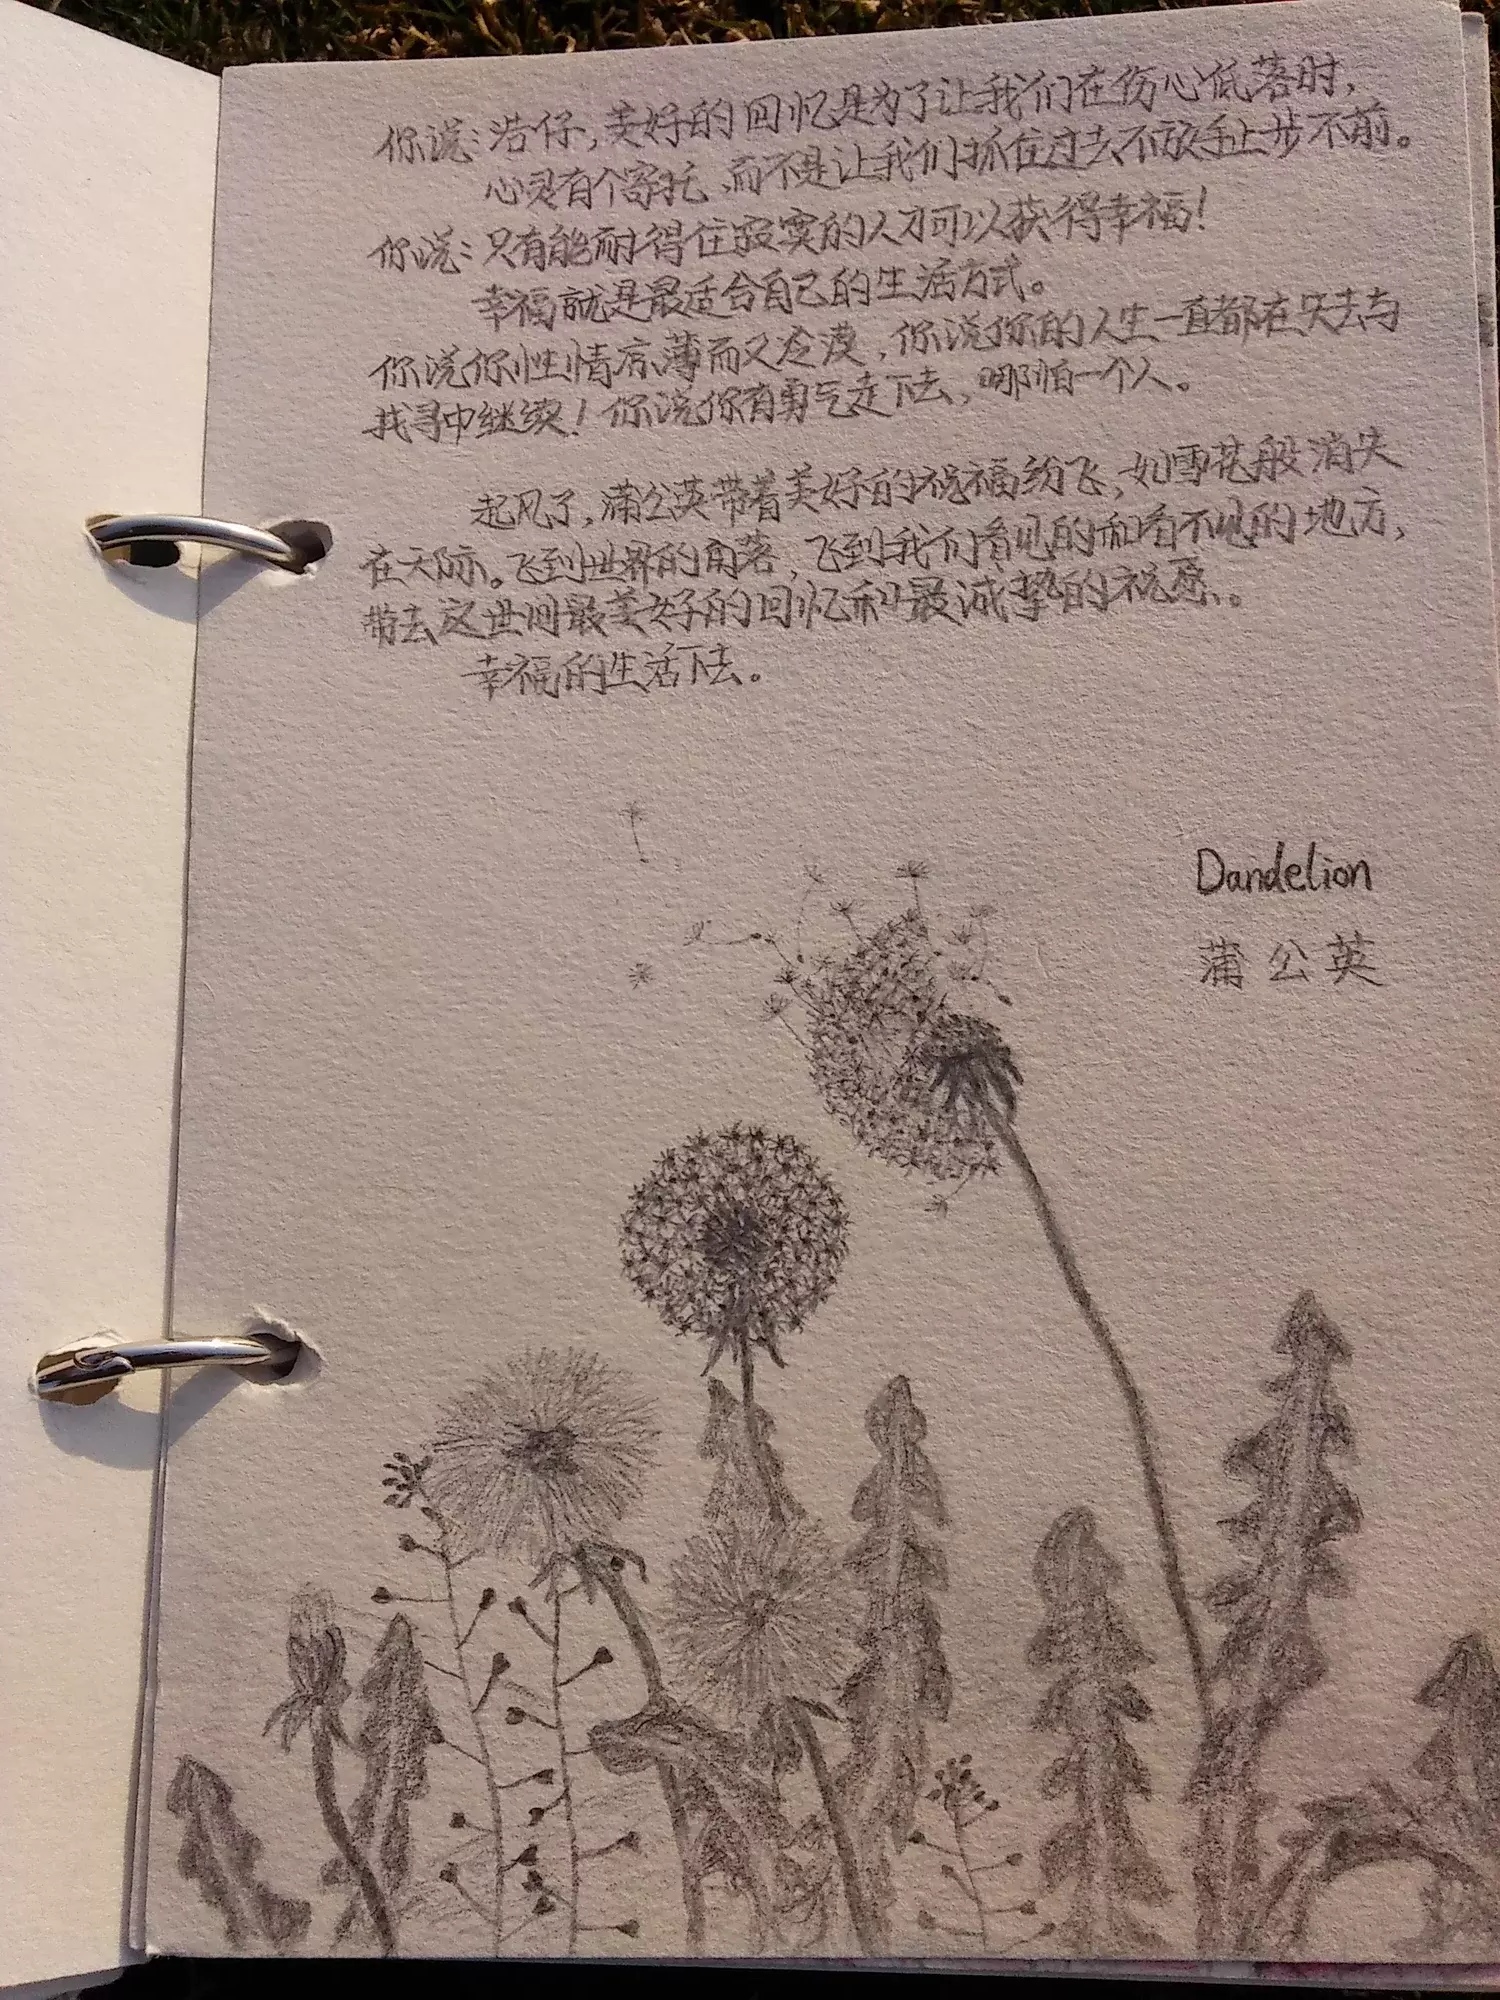 你说：浩仔，美好的回忆是为了让我们在伤心低落时，
心灵有个寄托，而不是让我们抓住过去不放手止步不前。
你说：只有能耐得住寂寞的人才可以获得幸福！
幸福就是最适合自己的生活方式。
你说你性情凉薄而又冷漠，你说你的人生一直都在失去与
找寻中继续！你说你有勇气走下去，哪怕一个人。
起风了，蒲公英带着美好的祝福纷飞，如雪花般消失
在天际。飞到世界的角落，飞到我们看见的和看不见的地方，
带去这世间最美好的回忆和最诚挚的祝愿。
幸福的生活下去。
Dandelion
蒲公英